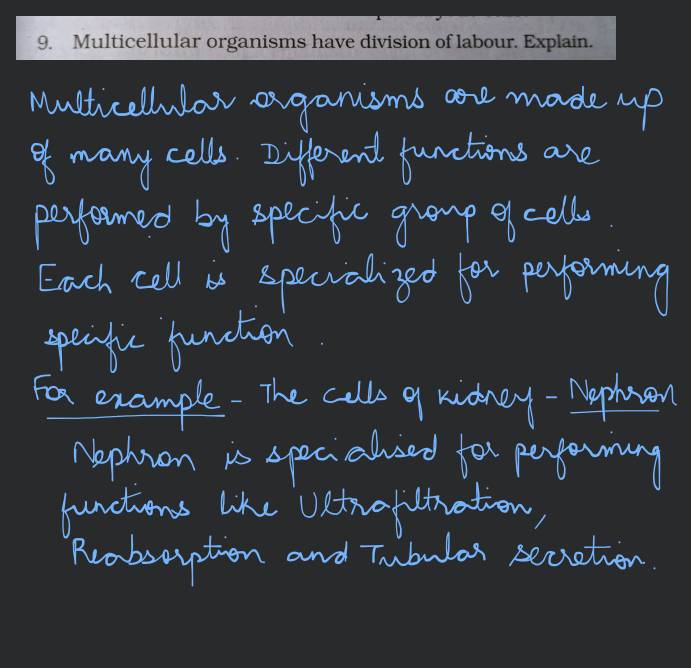 9. Multicellular organisms have division of labour. Explain.
Multicellular organisms are made up
of many cells. Different functions are
performed by specific group of cells.
Each cell is specialized for performing
specific function.
For example - The cells of kidney - Nephron
Nephron is specialised for performing
functions like Ultrafiltration,
Reabsorption and Tubular secretion.